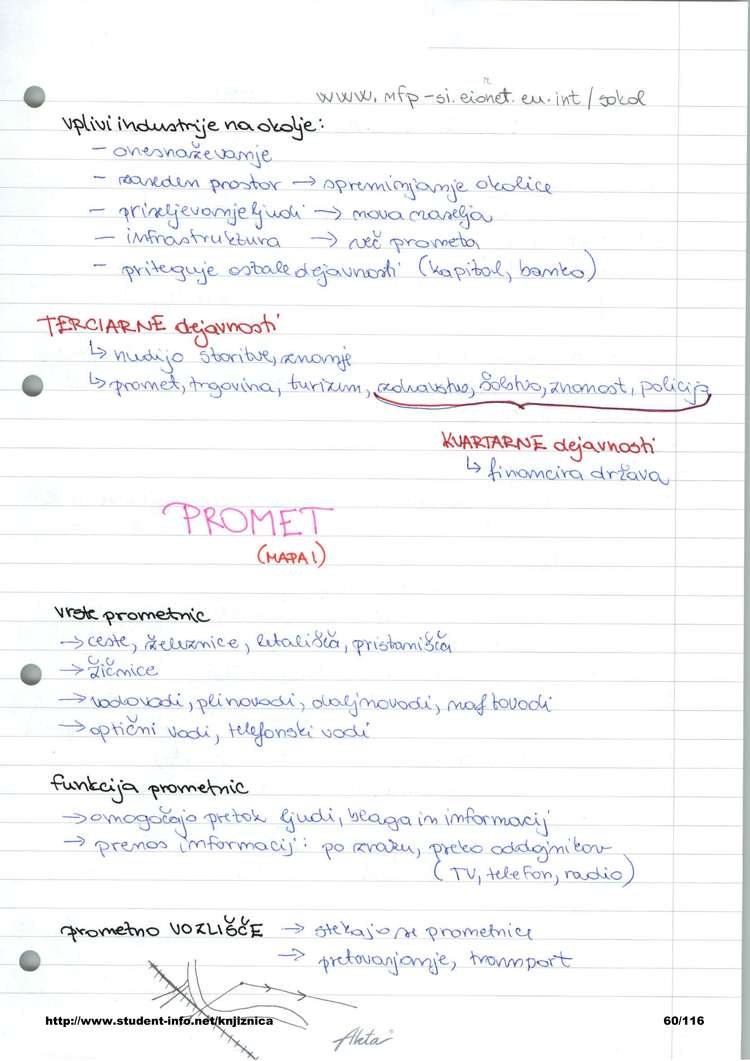 www.mfp-si.eionet.eu.int/sokol
vplivi industrije na okolje:
- onesnaževanje
- zaseden prostor → spreminjanje okolice
- priseljevanje ljudi → nova naselja
- infrastruktura → več prometa
- priteguje ostale dejavnosti (kapital, banko)
TERCIARNE dejavnosti
↳ nudijo storitve, znanje
↳ promet, trgovina, turizem, zdravstvo, šolstvo, znanost, policija
KVARTARNE dejavnosti
↳ financira država
PROMET
(MAPA 1)
vrste prometnic
→ ceste, železnice, letališča, pristanišča
→ žičnice
→ vodovodi, plinovodi, daljnovodi, naftovodi
→ optični vodi, telefonski vodi
funkcija prometnic
→ omogočajo pretok ljudi, blaga in informacij
→ prenos informacij: po zraku, preko oddajnikov
(TV, telefon, radio)
prometno VOZLIŠČE → stekajo se prometnice
→ pretovarjanje, transport
http://www.student-info.net/knjiznica
60/116